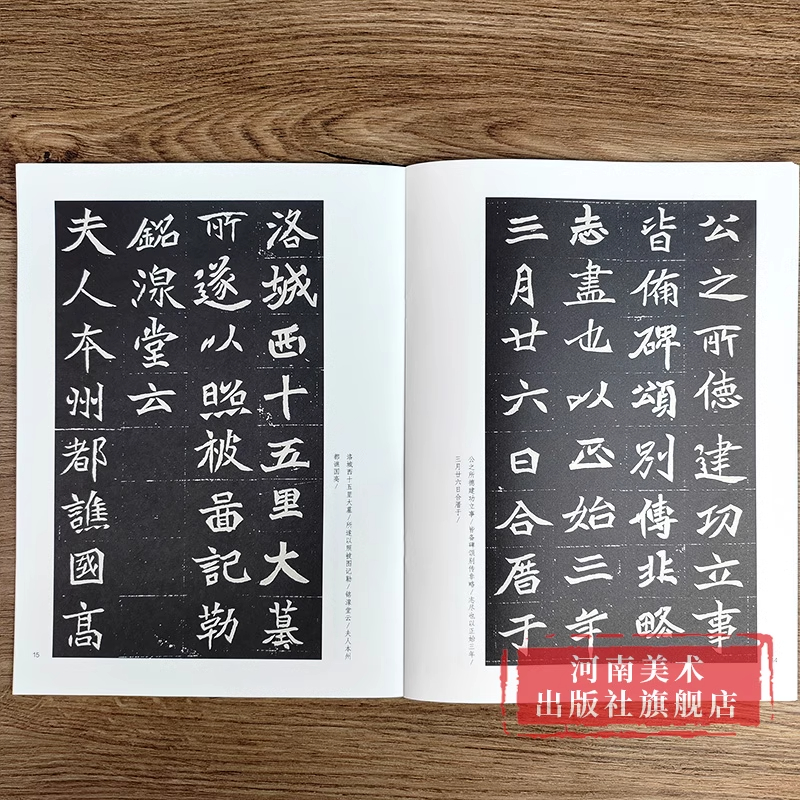 公之所德建功立事
皆備碑頌別傳非略
志盡也以正始三年
三月廿六日合厝于
公之所德建功立事/皆备碑颂别传非略/志尽也以正始三年/
三月廿六日合厝于/
洛城西十五里大墓
所遂以照被啚記勒
銘湶堂云
夫人本州都譙國高
洛城西十五里大墓/所遂以照被图记勒/铭湶堂云/夫人本州
都谯国高/
15
河南美术
出版社旗舰店